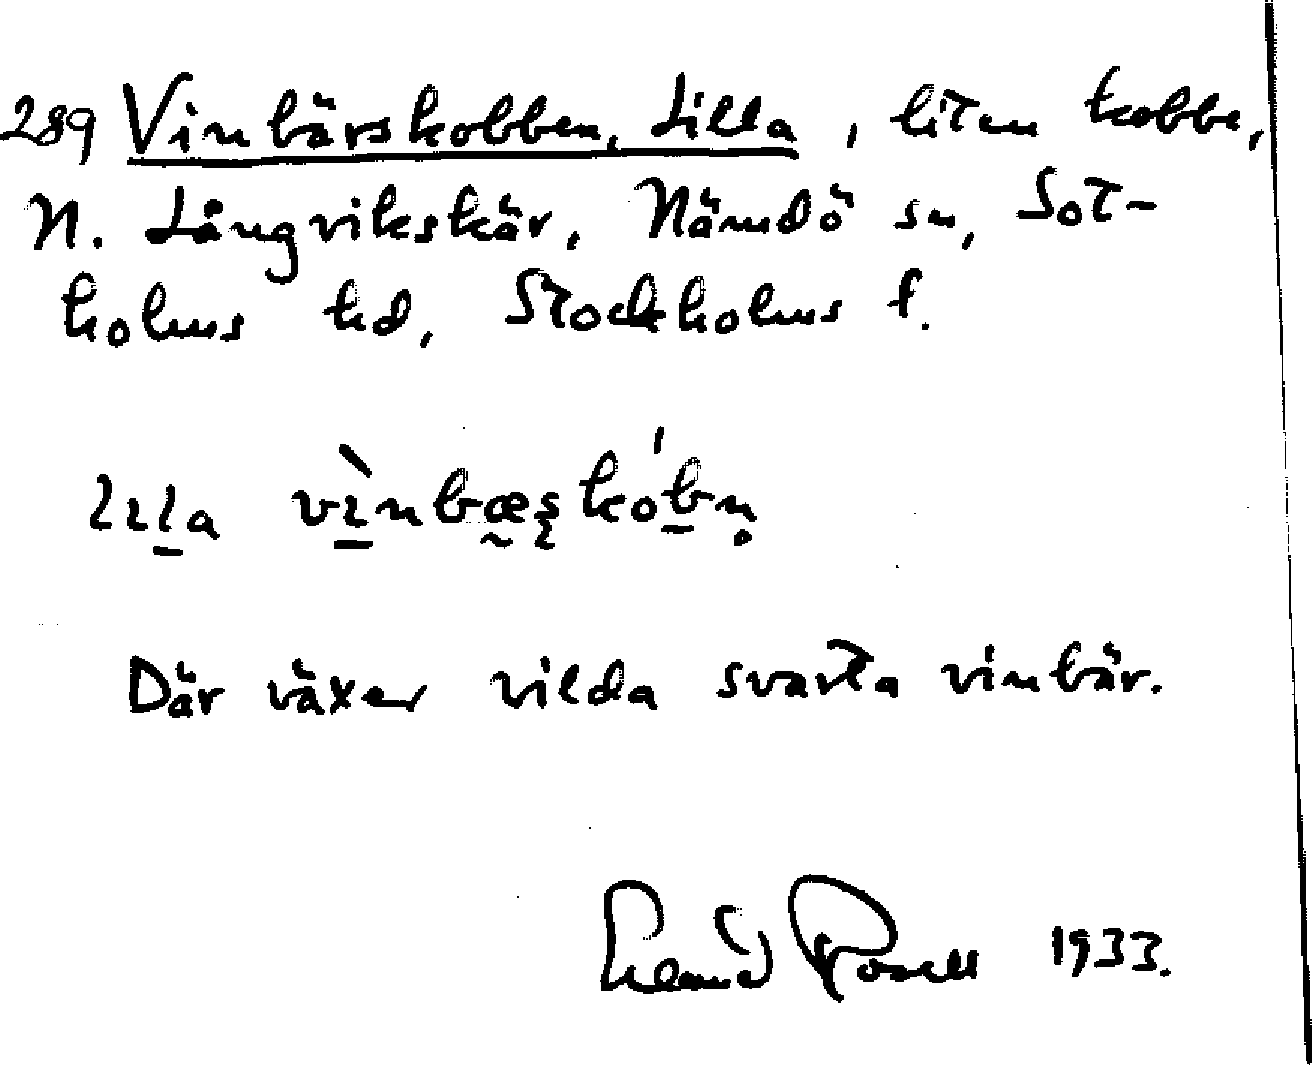 289 Vinbärskobben, Lilla, liten kobbe,
N. Långvikskär, Nämdö sn, Sot-
holms hd, Stockholms l.
lɩl̠a vɩ̠̀nbæ̰ʂkób̠n̥
Där växer vilda svarta vinbär.
Rosell 1933.